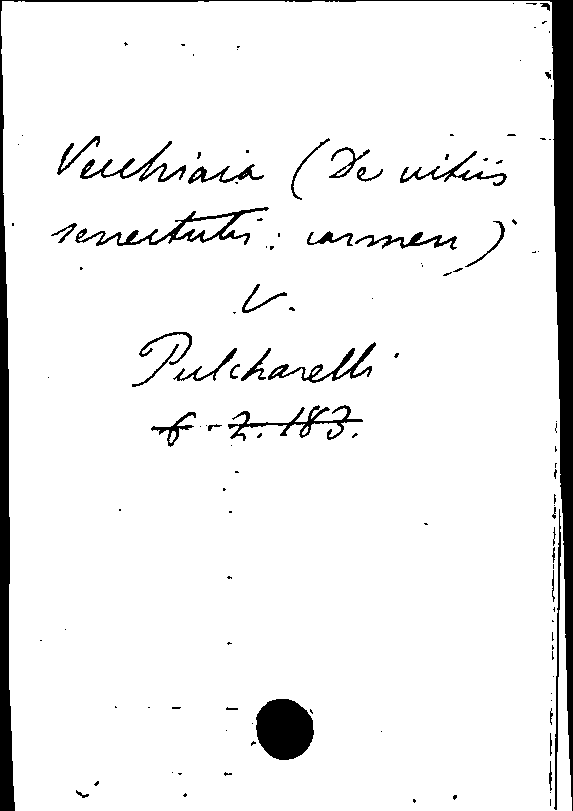 Vecchiaia (De vitiis
senectutis: carmen)
V.
Pulcharelli
6-2.183.